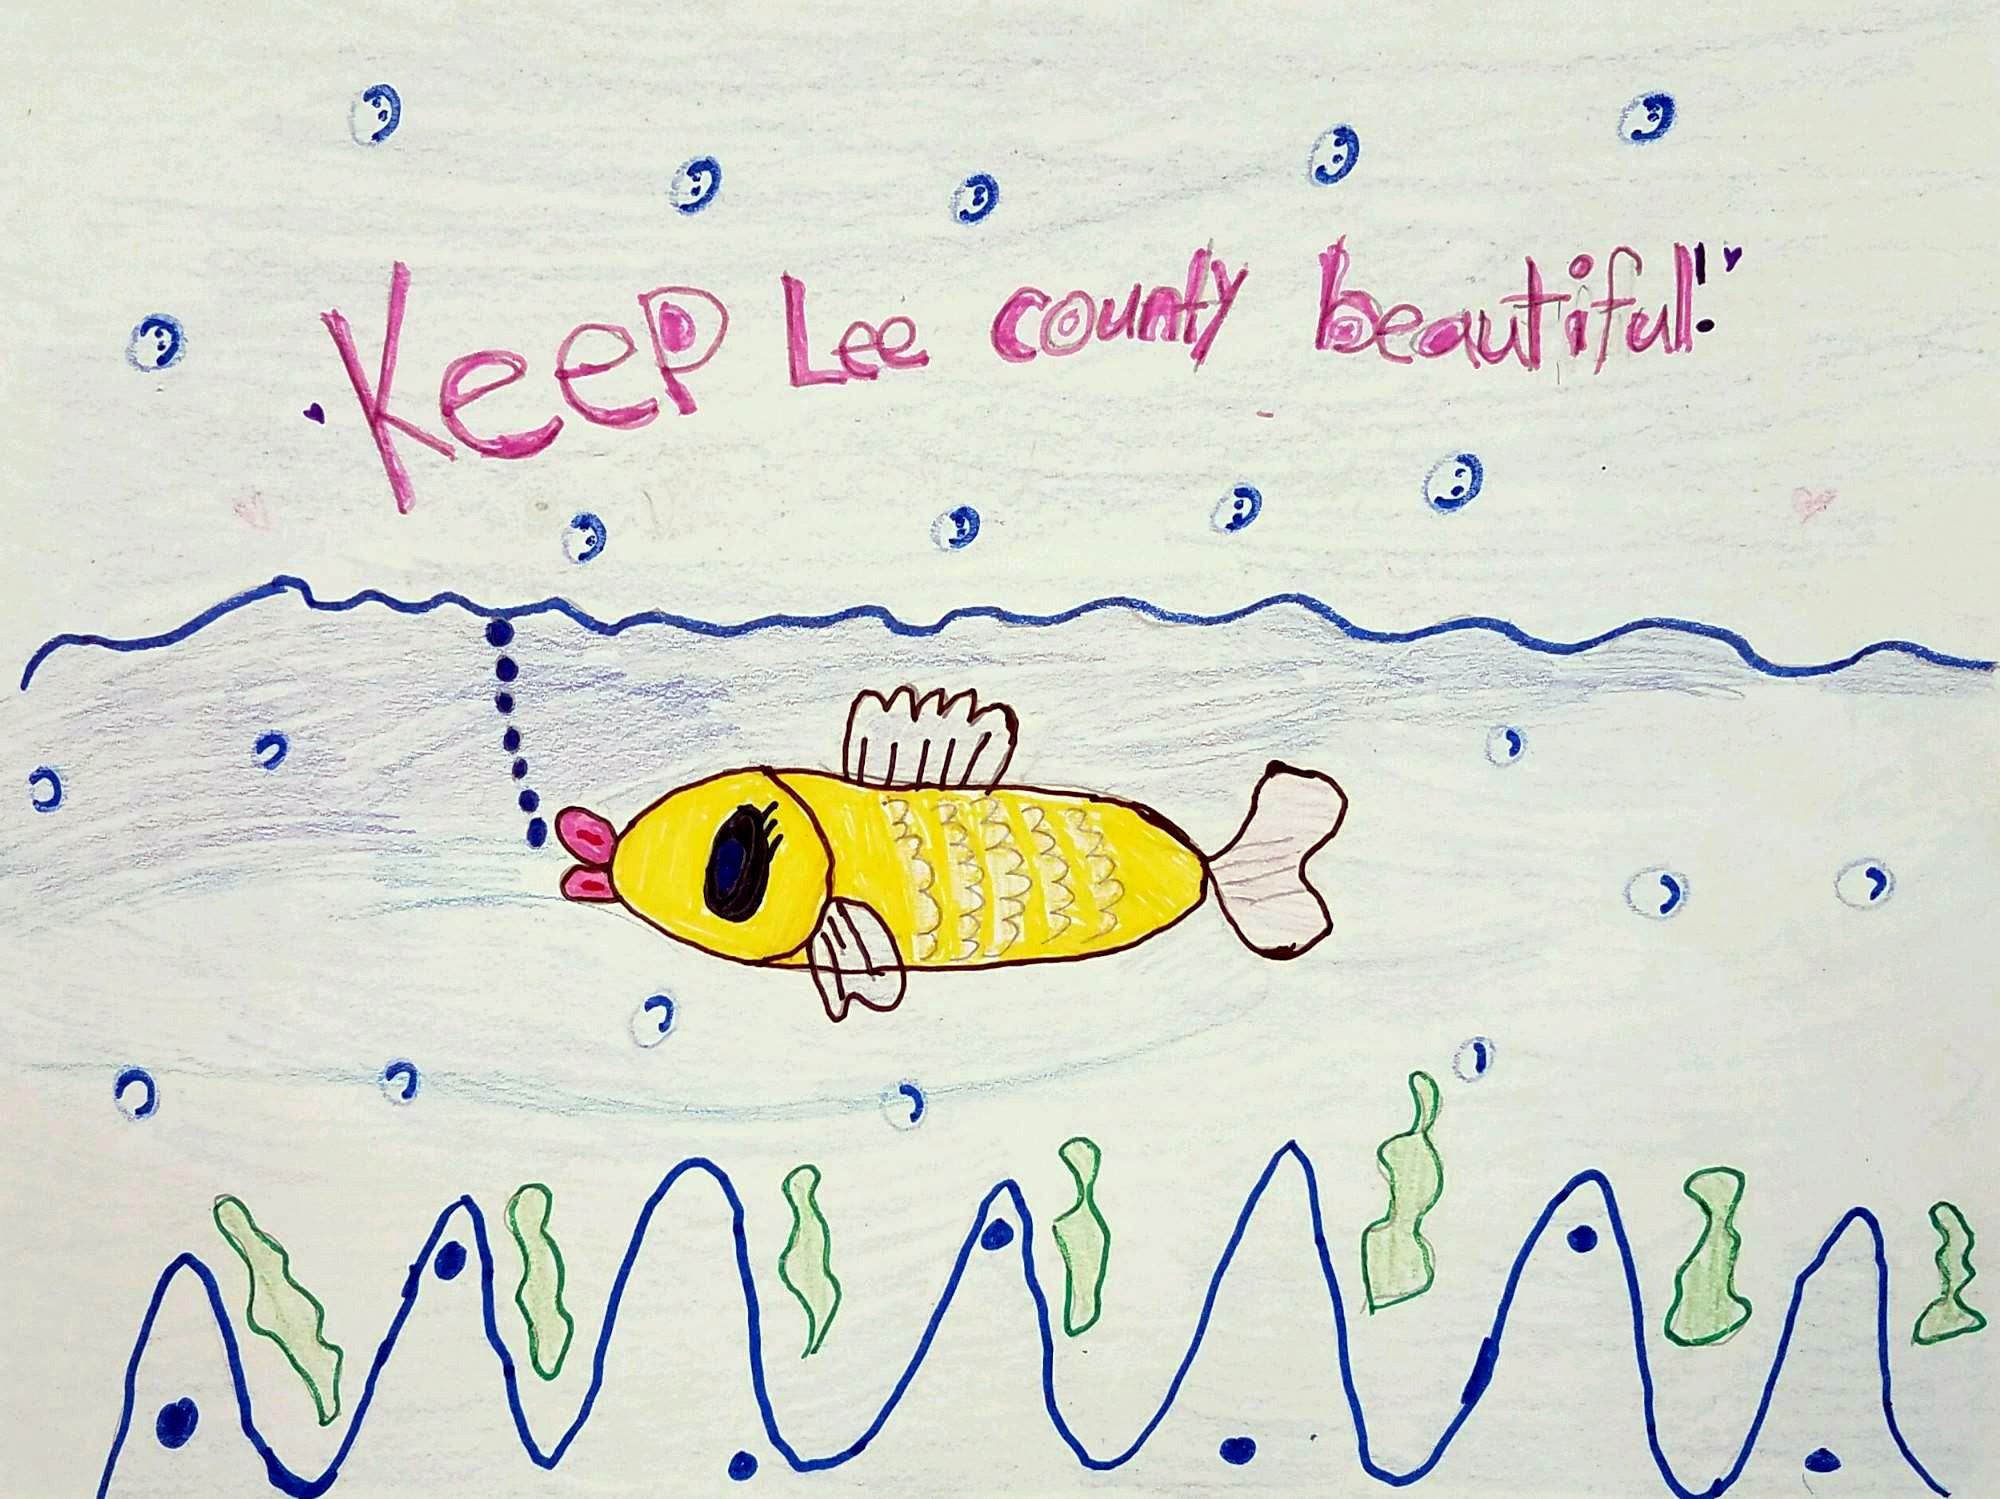 Keep Lee county beautiful!